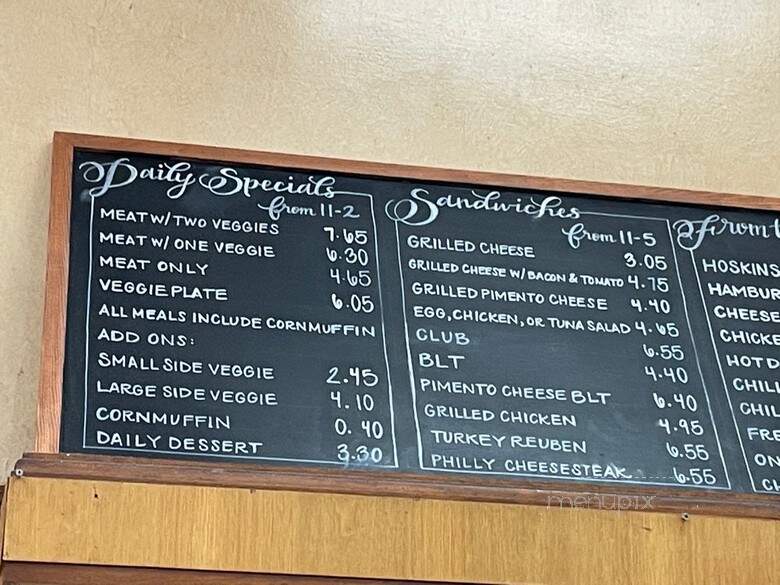 Daily Specials
from 11-2
MEAT W/ TWO VEGGIES 7.65
MEAT W/ ONE VEGGIE 6.30
MEAT ONLY 4.65
VEGGIE PLATE 6.05
ALL MEALS INCLUDE CORNMUFFIN
ADD ONS:
SMALL SIDE VEGGIE 2.45
LARGE SIDE VEGGIE 4.10
CORNMUFFIN 0.40
DAILY DESSERT 3.30
Sandwiches
from 11-5
GRILLED CHEESE 3.05
GRILLED CHEESE W/ BACON & TOMATO 4.75
GRILLED PIMENTO CHEESE 4.40
EGG, CHICKEN, OR TUNA SALAD 4.65
CLUB 6.55
BLT 4.40
PIMENTO CHEESE BLT 6.40
GRILLED CHICKEN 4.95
TURKEY REUBEN 6.55
PHILLY CHEESESTEAK 6.55
From
HOSKINS
HAMBUR
CHEESE
CHICKE
HOT D
CHILL
CHIL
FRE
ON
CH
menupix